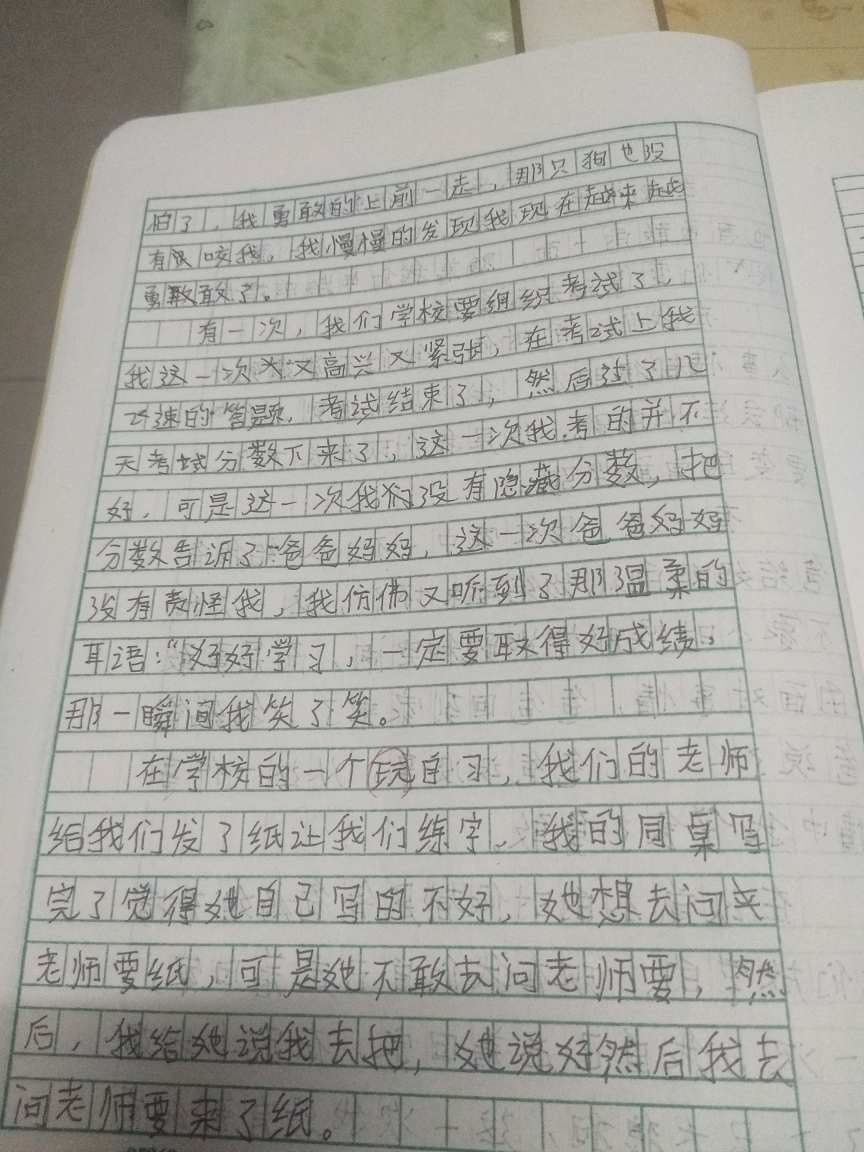 怕了，我勇敢的上前一走，那只狗也没
有 咬我，我慢慢的发现我现在越来越
勇敢敢了。
有一次，我们学校要组织考试了，
我这一次 又高兴又紧张，在考试上我
飞速的答题，考试结束了，然后过了几
天考试分数下来了，这一次我考的并不
好，可是这一次我们没有隐藏分数，把
分数告诉了爸爸妈妈，这一次爸爸妈妈
没有责怪我，我仿佛又听到了那温柔的
耳语：“好好学习，一定要取得好成绩，
那一瞬间我笑了笑。
在学校的一个 自习，我们的老师
给我们发了纸让我们练字，我的同桌写
完了觉得她自己写的不好，她想去问
老师要纸，可是她不敢去问老师要，然
后，我给她说我去把，她说好然后我去
问老师要来了纸。